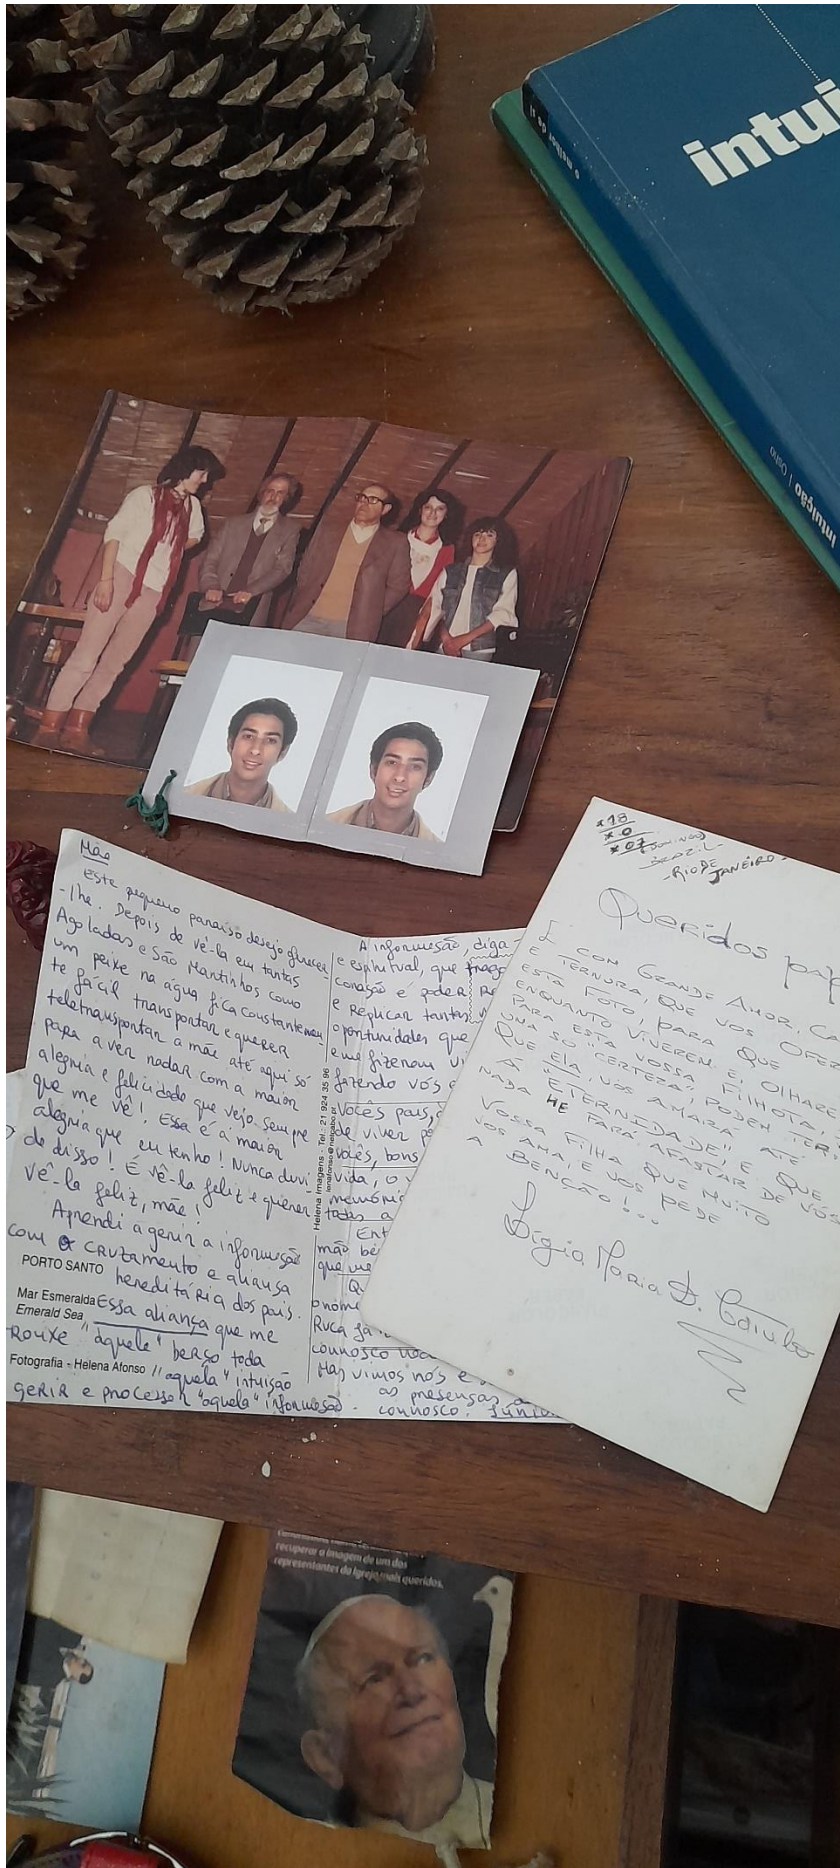 intui
o melhor de si
Intuição | Osho
Mãe
Este pequeno paraíso desejo oferecer-
-lhe. Depois de vê-la em tantas
Agoladas e São Mantinhos como
um peixe na água fica constantemen
te fácil transportar e querer
teletransportar a mãe até aqui só
para a ver nadar com a maior
alegria e felicidade que vejo sempre
que me vê! Essa é a maior
alegria que eu tenho! Nunca duvi
de disso! É vê-la feliz e querer
vê-la feliz, mãe!
Aprendi a gerir a informação
com o cruzamento e aliança
hereditária dos pais.
Essa aliança que me
trouxe "àquele" berço toda
"aquela" intuição
gerir e processar "aquela" informação.
PORTO SANTO
Mar Esmeralda
Emerald Sea
Fotografia - Helena Afonso
Helena Imagens - Tel.: 21 924 35 96
lenafonso@netcabo.pt
A informação, diga-
e espiritual, que trago
coração é poder re
e replicar tantas
oportunidades que
eme fizeram
fazendo vós
Vocês pais,
de viver
vocês, bons
vida, o
memóri
todas a
Ent
mão
que me
Q
Ruca já
connosco
Mas vimos nós e
as presenças
connosco.
*18
*0
*07 DOMINGO
BRAZIL-
-RIO DE
JANEIRO-
Queridos pap
É COM GRANDE AMOR, CA
E TERNURA, QUE VOS OFER
ESTA FOTO, PARA QUE
ENQUANTO VIVEREM E OLHARE
PARA ESTA VOSSA FILHOTA,
UMA SÓ "CERTEZA", PODEM TER:
QUE ELA VOS AMARÁ ATÉ
À "ETERNIDADE", E QUE
NADA ME FARÁ AFASTAR DE VÓS
VOSSA FILHA QUE MUITO
VOS AMA, E VOS PEDE
A BENÇÃO!...
Lígia Maria D.
recuperar a imagem de um dos
representantes da Igreja mais queridos.